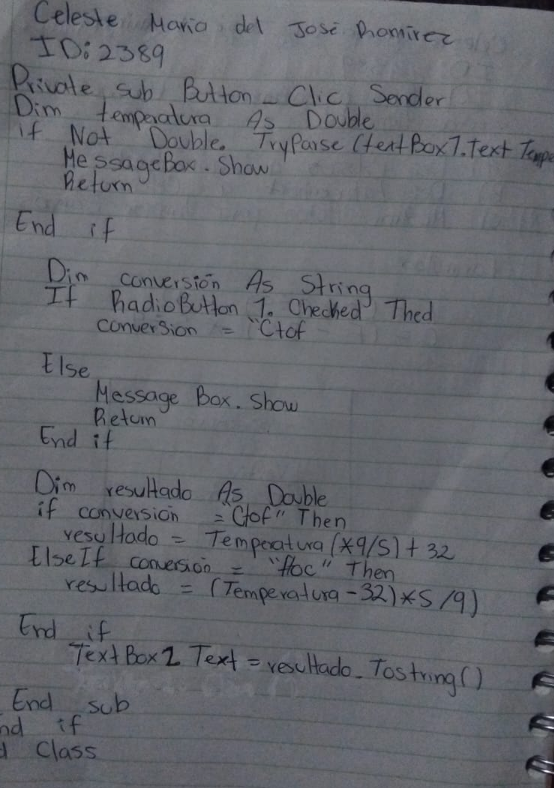 Celeste Maria del José Ramirez
ID: 2389
Private sub Button_Clic Sender
Dim temperatura As Double
if Not Double. TryParse (textBox1.Text Tempe
MessageBox. Show
Return
End if
Dim conversión As String
If RadioButton 1. Checked Thed
conversion = "Ctof
Else
Message Box. Show
Return
End if
Dim resultado As Double
if conversión = Ctof" Then
resultado = Temperatura (*9/5) + 32
ElseIf conversión = "ftoc" Then
resultado = (Temperatura-32)*5/9)
End if
TextBox2 Text = resultado_Tostring()
End sub
nd if
d Class